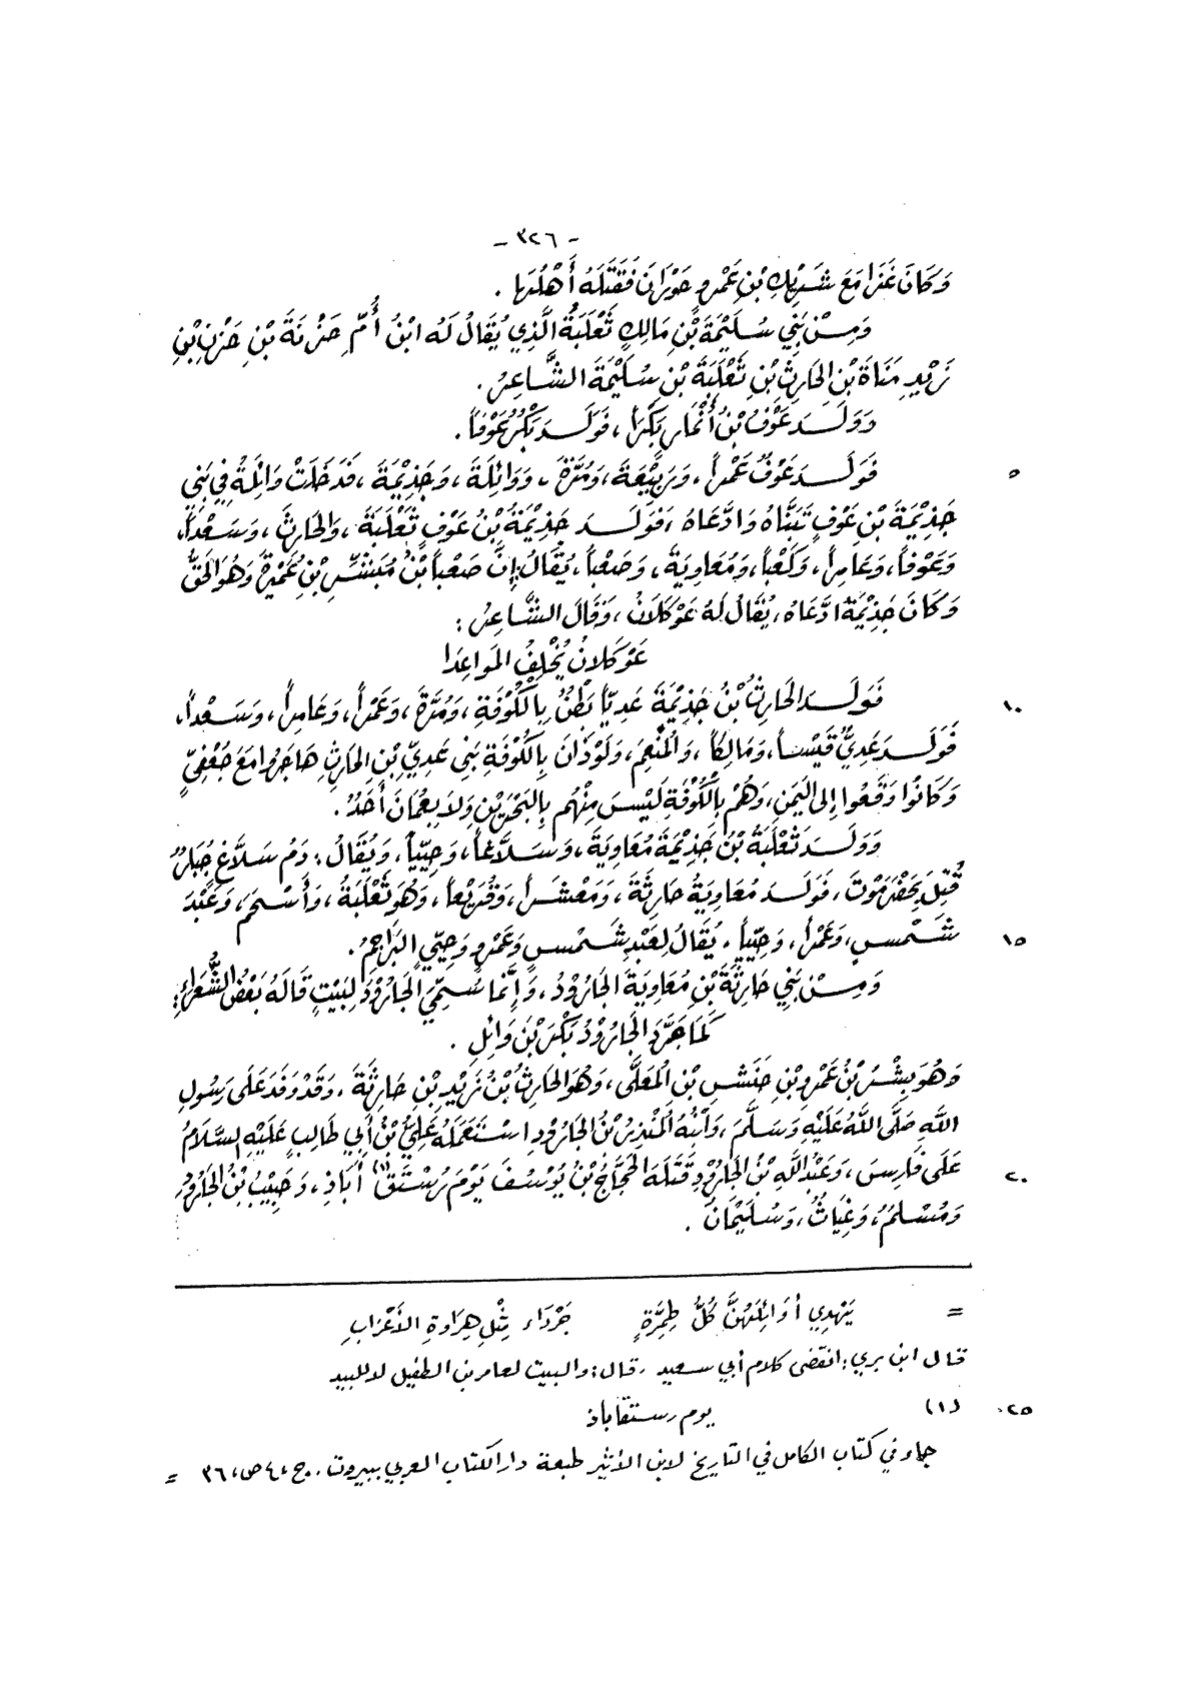 - ٣٢٦ -
وَكَانَ غَزَا مَعَ شَرِيكِ بْنِ عَمْرٍو حَوْرَانَ فَقَتَلَهُ أَهْلُهَا .
وَمِنْ بَنِي سُلَيْمَةَ بْنِ مَالِكٍ ثَعْلَبَةُ الَّذِي يُقَالُ لَهُ ابْنُ أُمِّ حَزْنَةَ بْنِ حَزْنِ بْنِ
زَيْدِ مَنَاةَ بْنِ الحَارِثِ بْنِ ثَعْلَبَةَ بْنِ سُلَيْمَةَ الشَّاعِرُ .
وَوَلَدَ عَوْفُ بْنُ أَنْمَارٍ بَكْرًا ، فَوَلَدَ بَكْرٌ عَوْفاً .
فَوَلَدَ عَوْفٌ عَمْراً ، وَرَبِيْعَةَ ، وَمُرَّةَ ، وَوَائِلَةَ ، وَجَذِيْمَةَ ، فَدَخَلَتْ وَائِلَةُ فِي بَنِي ٥
جَذِيْمَةَ بْنِ عَوْفٍ تَبَنَّاهُ وَادَّعَاهُ ، فَوَلَدَ جَذِيْمَةُ بْنُ عَوْفٍ ثَعْلَبَةَ ، وَالحَارِثَ ، وَسَعْداً،
وَعَوْفاً ، وَعَامِراً ، وَكَعْباً ، وَمُعَاوِيَةَ ، وَصَعْباً ، يُقَالُ : إِنَّ صَعْباً بْنُ مُبَشِّرِ بْنِ عُمَيْرَةَ وَهُوَ الحَقُّ
وَكَانَ جَذِيْمَةُ ادَّعَاهُ ، يُقَالُ لَهُ عَوْكَلَانُ ، وَقَالَ الشَّاعِرُ :
عَوْكَلانُ يُخْلِفُ المَوَاعِدَا
فَوَلَدَ الحَارِثُ بْنُ جَذِيْمَةَ عَدِيّاً بَطْنٌ بِالكُوْفَةِ ، وَمُرَّةَ ، وَعَمْراً ، وَعَامِراً ، وَسَعْداً ، ١٠
فَوَلَدَ عَدِيٌّ قَيْساً ، وَمَالِكاً ، وَالمُنْعِمَ ، وَلَوْذَانَ بِالكُوْفَةِ بَنِي عَدِيِّ بْنِ الحَارِثِ هَاجَرُوا مَعَ جُعْفِيٍّ
وَكَانُوا وَقَعُوا إِلى اليَمَنِ ، وَهُمْ بِالكُوْفَةِ لَيْسَ مِنْهُم بِالبَحْرَيْنِ وَلاَ بِعُمَانَ أَحَدٌ .
وَوَلَدَ ثَعْلَبَةُ بْنُ جَذِيْمَةَ مُعَاوِيَةَ ، وَسَلاَّغاً ، وَحِيِّياً ، وَيُقَالُ : دَمُ سَلاَّغٍ جُبَارٌ
قُتِلَ بِحَضْرَمَوْتَ ، فَوَلَدَ مُعَاوِيَةُ حَارِثَةَ ، وَمَعْشَراً ، وَقُرَيْعاً ، وَهُوَ ثَعْلَبَةُ ، وَأَسْحَمَ ، وَعَبْدَ
شَمْسٍ ، وَعَمْراً ، وَحِيِّياً ، يُقَالُ لِعَبْدِ شَمْسٍ وَعَمْرٍو وَحِيِّي البَرَاجِمُ . ١٥
وَمِنْ بَنِي حَارِثَةَ بْنِ مُعَاوِيَةَ الجَارُوْدُ ، وَإِنَّمَا سُمِّيَ الجَارُوْدَ لِبَيْتٍ قَالَهُ بَعْضُ الشُّعَرَاءِ :
كَمَا جَرَّدَ الجَارُوْدُ بَكْرَ بْنَ وَائِلِ .
وَهُوَ بِشْرُ بْنُ عَمْرِو بْنِ حَنَشِ بْنِ المُعَلَّى ، وَهُوَ الحَارِثُ بْنُ زَيْدِ بْنِ حَارِثَةَ ، وَقَدْ وَفَدَ عَلَى رَسُولِ
اللَّهِ صَلَّى اللَّهُ عَلَيْهِ وَسَلَّمَ ، وَابْنُهُ المُنْذِرُ بْنُ الجَارُوْدِ اسْتَعْمَلَهُ عَلِيُّ بْنُ أَبِي طَالِبٍ عَلَيْهِ السَّلاَمُ
عَلَى فَارِسَ ، وَعَبْدُ اللَّهِ بْنُ الجَارُوْدِ قَتَلَهُ الحَجَّاجُ بْنُ يُوْسُفَ يَوْمَ رُسْتَقَ (١) أَبَاذَ ، وَحَبِيْبُ بْنُ الجَارُوْدِ ٢٠
وَمُسْلِمٌ ، وَغِيَاثٌ ، وَسُلَيْمَانُ .
= يَهْدِي أَوَائِلَهُنَّ كُلُّ طِمِرَّةٍ جَرْدَاءَ مِثْلِ هِرَاوَةِ الأَعْزَابِ
قال ابن بري : انقضى كلام أبي سعيد ، قال : والبيت لعامر بن الطفيل لا للبيد
(١) يوم رستقاباذ ٢٥
جاء في كتاب الكامل في التاريخ لابن الأثير طبعة دار الكتاب العربي ببيروت . ج ، ٤ ص ، ٣٦ =